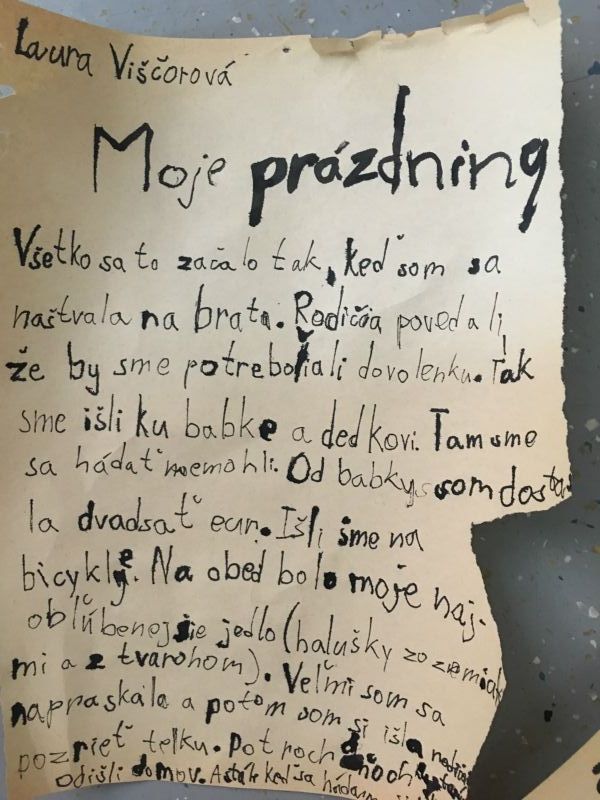 Laura Viščorová
Moje prázdning
Všetko sa to začalo tak, keď som sa
naštvala na brata. Rodičia povedali,
že by sme potrebovali dovolenku. Tak
sme išli ku babke a dedkovi. Tam sme
sa hádať nemohli. Od babky som dosta
la dvadsať eur. Išli sme na
bicykle. Na obed bolo moje naj-
obľúbenejšie jedlo (halušky zo zemiak
mi a z tvarohom). Veľmi som sa
napraskala a potom som si išla
pozrieť telku. Po troch dňoch
odišli domov. A stále keď sa hádam